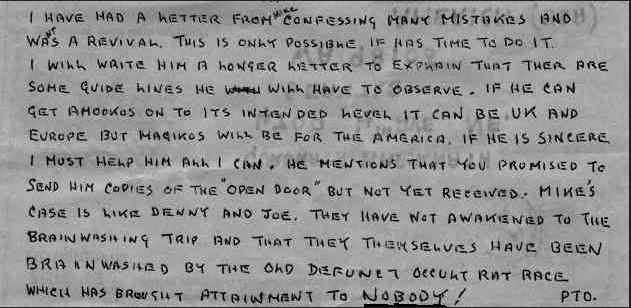 I HAVE HAD A LETTER FROM MIKE CONFESSING MANY MISTAKES AND
WANTS A REVIVAL. THIS IS ONLY POSSIBLE IF HAS TIME TO DO IT.
I WILL WRITE HIM A LONGER LETTER TO EXPLAIN THAT THER ARE
SOME GUIDE LINES HE WILL HAVE TO OBSERVE. IF HE CAN
GET AMOOKOS ON TO ITS INTENDED LEVEL IT CAN BE UK AND
EUROPE BUT MAGIKOS WILL BE FOR THE AMERICA. IF HE IS SINCERE
I MUST HELP HIM ALL I CAN. HE MENTIONS THAT YOU PROMISED TO
SEND HIM COPIES OF THE "OPEN DOOR" BUT NOT YET RECEIVED. MIKE'S
CASE IS LIKE DENNY AND JOE. THEY HAVE NOT AWAKENED TO THE
BRAINWASHING TRIP AND THAT THEY THEMSELVES HAVE BEEN
BRAINWASHED BY THE OLD DEFUNCT OCCULT RAT RACE
WHICH HAS BROUGHT ATTAINMENT TO NOBODY! PTO.